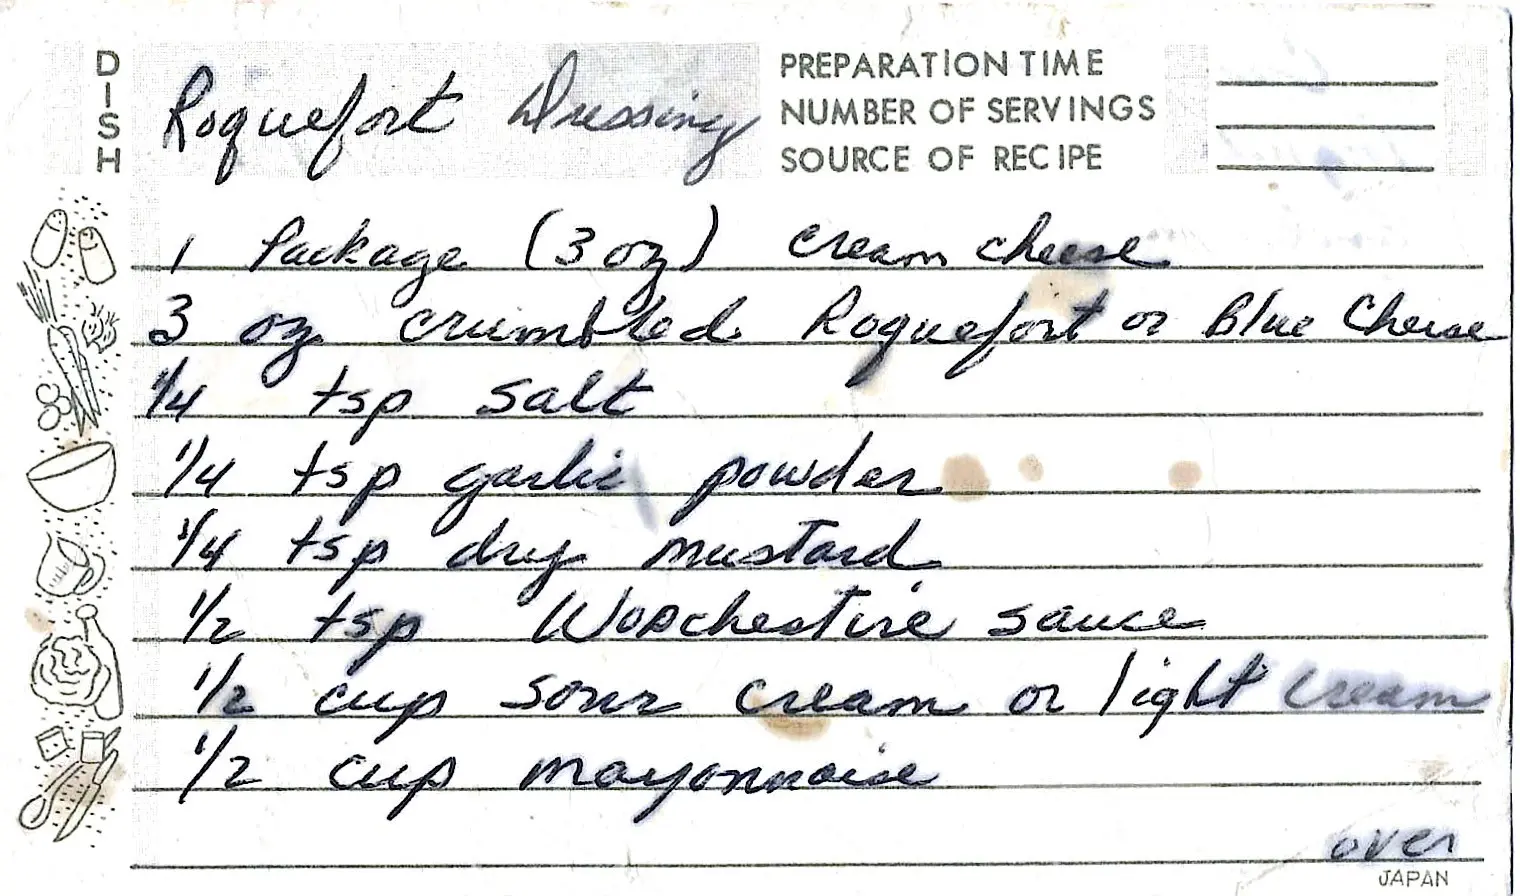 DISH
Roquefort Dressing
PREPARATION TIME
NUMBER OF SERVINGS
SOURCE OF RECIPE
1 Package (3 oz) cream cheese
3 oz crumbled Roquefort or Blue Cheese
1/4 tsp salt
1/4 tsp garlic powder
1/4 tsp dry mustard
1/2 tsp Worchestire sauce
1/2 cup sour cream or light cream
1/2 cup mayonnaise
over
JAPAN